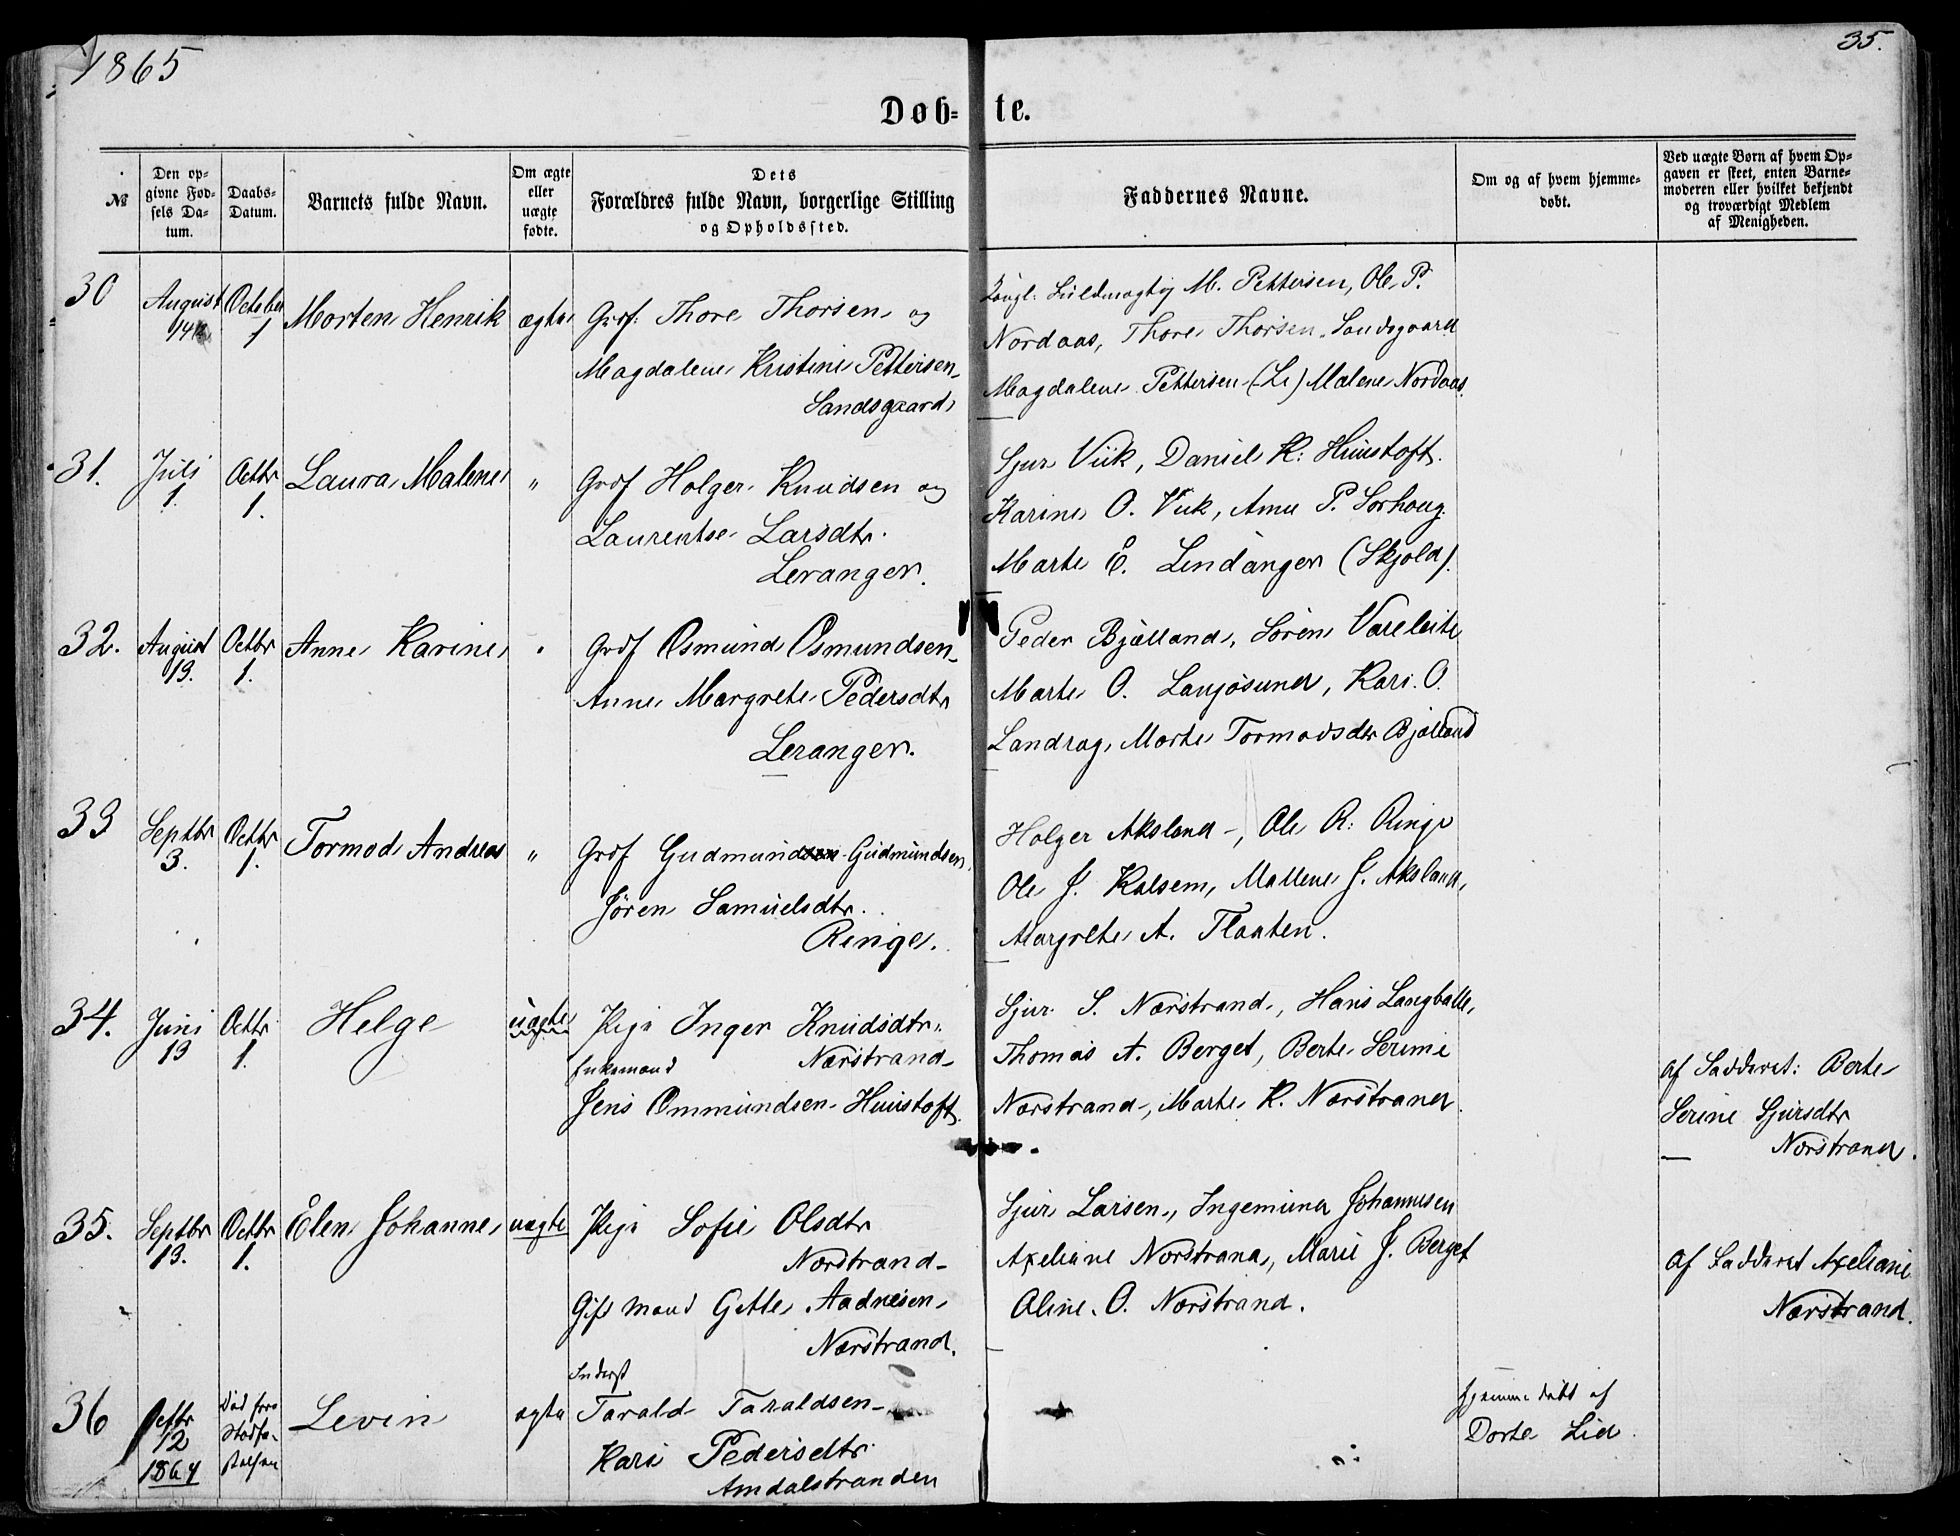 1865
35.
Døb- te.
№
Den opgivne Fødsels Datum.
Daabs-Datum.
Barnets fulde Navn.
Om ægte eller uægte fødte.
Dets
Forældres fulde Navn, borgerlige Stilling
og Opholdssted.
Faddernes Navne.
Om og af hvem hjemme-
døbt.
Ved uægte Børn af hvem Op-
gaven er skeet, enten Barne-
moderen eller hvilket bekjendt
og troværdigt Medlem
af Menigheden.
30 August October 1 Morten Henrik ægte
Grdf: Thore Thorsen og
Magdalene Kristine Pettersen
Sandsgaard
M. Pettersen, Ole P.
Nordaas, Thore Thorsen Sandsgaard
Magdalene Pettersen Malene Nordaas
31. Juli 1. Octbr 1. Laura Malene "
Grdf Holger Knudsen og
Laurentse Larsdtr.
Leranger.
Sjur Viik, Daniel K: Huustoft.
Karine O. Viik, Anne P. Sørhoug.
Marte E. Lindanger (Skjold).
32. August 13. Octbr 1. Anne Karine
Grdf Osmund Osmundsen
Anne Margrete Pedersdtr
Leranger.
Peder Bjælland, Søren Vareleite
Marte O. Laupøsund, Kari O.
Landrag, Marte Tormodsdtr Bjælland
33 Septbr 3. Octbr 1. Tormod Andreas "
Grdf Gudmund Gudmundsen
Søren Samuelsdtr.
Ringe.
Holger Aksland, Ole R: Ringe
Ole J. Kalsem, Mallene J. Aksland,
Margrete A. Flaaten.
34. Juni 13 Octbr 1. Helge uægte
Pige Inger Knudsdtr.
Enkemand Nærstrand
Jens Ommundsen Huustoft.
Sjur S. Nærstrand, Hans Langballe,
Thomas A. Berget, Berte Serine
Nærstrand, Marte K. Nærstrand
af Fadderet: Berte
Serine Sjursdtr
Nærstrand.
35. Septbr 13. Octbr 1. Elen Johanne uægte
Pige Sofie Olsdtr
Nærstrand
Gift Mand Gitle Aadnesen
Nærstrand.
Sjur Larsen, Ingemund Johannesen
Axeliane Nærstrand, Marie J. Berget
Aline O. Nærstrand.
af Fadderet Axeliane
Nærstrand.
36 Octbr 12 1864 Død før Levin ægte
Inderst
Tarald Taraldsen
Kari Pedersdtr.
Amdalstranden
hjemmedøbt af
Dorte Lid.